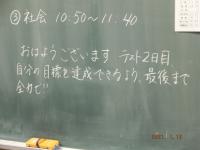 ② 社会 10:50〜11:40
おはようございます テスト2日目
自分の目標を達成できるよう、最後まで
全力で!!